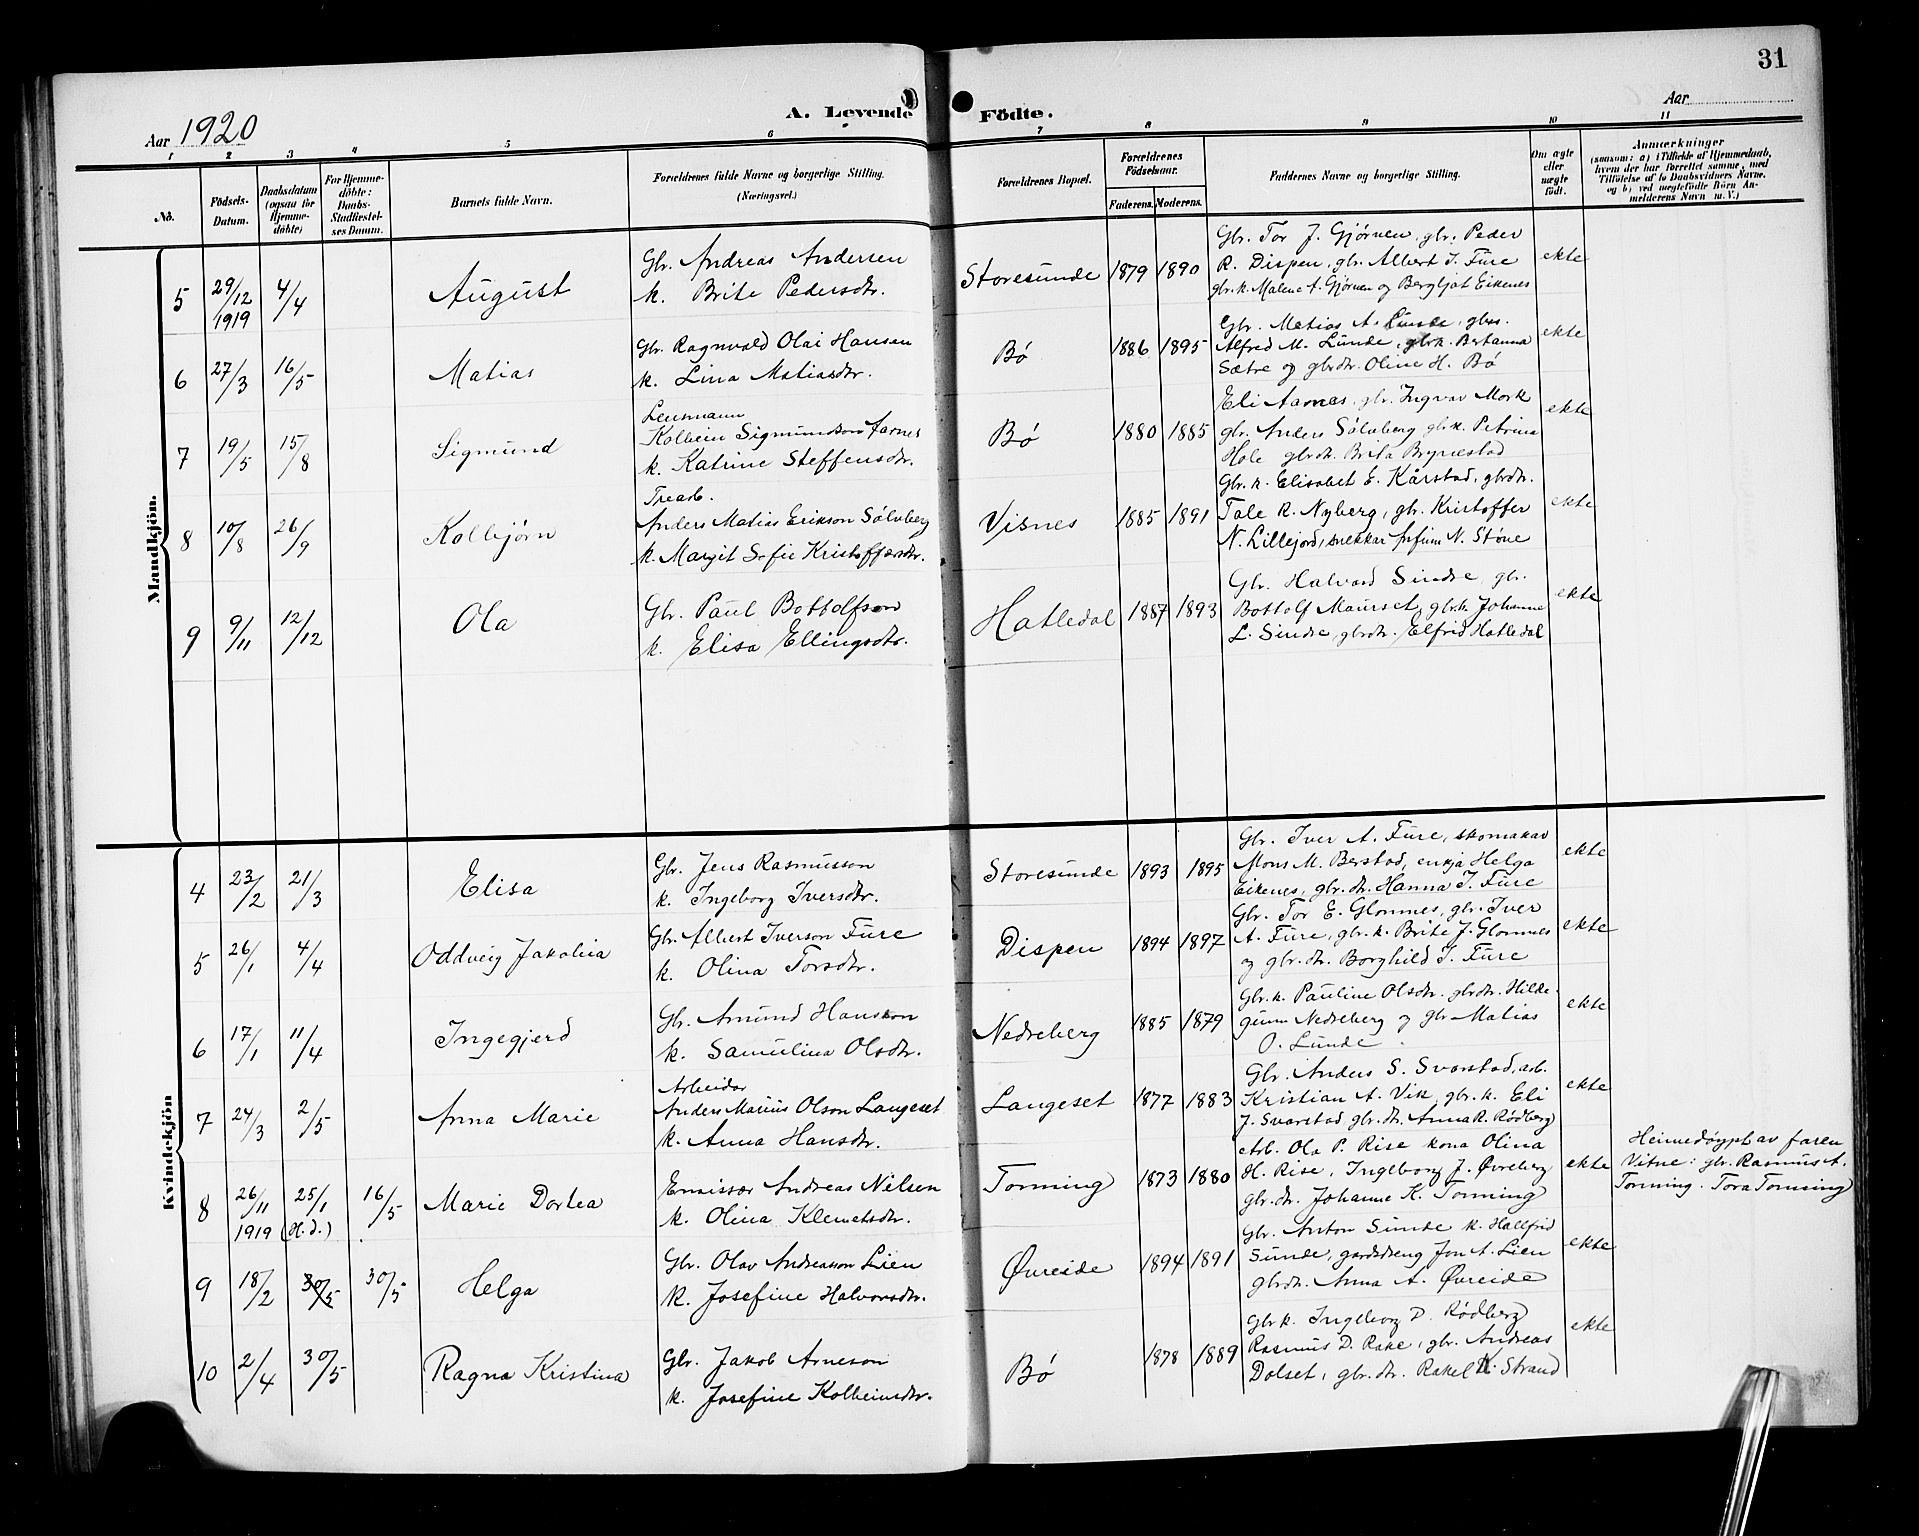 31
Aar 1920
A. Levende Födte.
Aar
1 2 3 4 5 6 7 8 9 10 11
No.
Födsels-Datum.
Daabsdatum (ogsaa for Hjemme-döbte)
For Hjemme-döbte: Daabs-Stadfæstel-ses Datum.
Barnets fulde Navn.
Forældrenes fulde Navne og borgerlige Stilling. (Næringsvei.)
Forældrenes Bopæl.
Forældrenes Födselsaar.
Faderens. Moderens.
Faddernes Navne og borgerlige Stilling.
Om ægte eller uægte födt.
Anmærkninger
(saasom: a) i Tilfælde af Hjemmedaab,
hvem der har forrettet samme, med
Tilföielse af to Daabsvidners Navne,
og b) ved uægtefödte Börn An-
melderens Navn m. V.)
Mandkjön.
5 29/12 1919 4/4 August
Gbr. Andreas Andersen
k. Brite Pedersdtr.
Storesunde 1879 1890
Gbr. Tor J. Gjørnen, gbr. Peder
R. Dispen, gbr. Albert I. Füre
gbr.k. Malene A. Gjørnen og Bergljot Eikenes
ekte
6 27/3 16/5 Matias
Gbr. Ragnvald Olai Hansen
k. Lina Matiasdtr.
Bø 1886 1895
Gbr. Matias A. Lunde, gbrs.
Alfred M. Lunde, gbrk. Bertanna
Sætre og gbrdtr. Oline H. Bø
ekte
7 19/5 15/8 Sigmund
Lensmann
Kolbein Sigmundson Aarnes
k. Katrine Steffensdtr.
Bø 1880 1885
Eli Aarnes, gbr. Ingvar Mork
gbr. Anders Sølvberg gbrk. Petrina
Hole gbrdtr. Brita Brynestad
ekte
8 10/8 26/9 Kolbjørn
Trearb.
Anders Matias Erikson Sølvberg
k. Margit Sofie Kristoffersdtr.
Visnes 1885 1891
Gbr. k. Elisabet E. Kårstad, gbrdtr.
Tale R. Nyberg, gbr. Kristoffer
N. Lillejord, snekkar N. Støve
ekte
9 9/11 12/12 Ola
Gbr. Paul Bottolfson
k. Elisa Ellingsdtr.
Hatledal 1887 1893
Gbr. Halvard Sindre, gbr.
Bottolf Maurset, gbrk. Johanne
L. Sindre, gbrdtr. Elfrid Hatledal
ekte
Kvindekjön
4 23/2 21/3 Elisa
Gbr. Jens Rasmusson
k. Ingeborg Iversdtr.
Storesunde 1893 1895
Gbr. Iver A. Füre, skomakar
Mons M. Berstad, enkja Helga
Eikenes, gbr. dtr. Hanna I. Füre
ekte
5 26/1 4/4 Oddveig Jakobina
Gbr. Albert Iverson Füre
k. Olina Torsdtr.
Dispen 1894 1897
Gbr. Tor E. Glomnes, gbr. Iver
A. Füre, gbr. k. Brite J. Glomnes
og gbr. dtr. Borghild I. Füre
ekte
6 17/1 11/4 Ingegjerd
Gbr. Amund Hansson
k. Samulina Olsdtr.
Nedreberg 1885 1879
Gbr. k. Pauline Olsdtr. gbrdtr. Hilde-
gunn Nedreberg og gbr Matias
O. Lunde.
ekte
7 24/3 2/5 Anna Marie
Arbeidar
Anders Marius Olson Langeset
k. Anna Hansdtr.
Langeset 1877 1883
Gbr. Anders S. Svarstad, arb.
Kristian A. Vik, gbr. k. Eli
J. Svarstad gbr. dtr. Anna R. Rødberg
ekte
8 26/11 1919 25/1 (H.d.) 16/5 Marie Dortea
Emissær Andreas Nilsen
k. Olina Klemetsdtr.
Tonning 1873 1880
Arb. Ola P. Rise kona Olina
H. Rise, Ingeborg J. Øvreberg
gbr. dtr. Johanne K. Tonning
ekte
Heimedøypt av faren
Vitne: gbr. Rasmus A.
Tonning. Tora Tonning
9 18/2 30/5 30/5 Helga
Gbr. Olav Andreasson Lien
k. Josefine Halvorsdtr.
Øvreide 1894 1891
Gbr. Anton Sunde k. Hallfrid
Sunde, gardsdreng Jon A. Lien
gbrdtr. Anna A. Øvreide
ekte
10 2/4 30/5 Ragna Kristina
Gbr. Jakob Arneson
k. Josefine Kolbeinsdtr.
Bø 1878 1889
Gbr k. Ingeborg D. Rødberg
Rasmus D. Rake, gbr. Andreas
Dolset, gbr. dtr. Rakel K. Strand
ekte